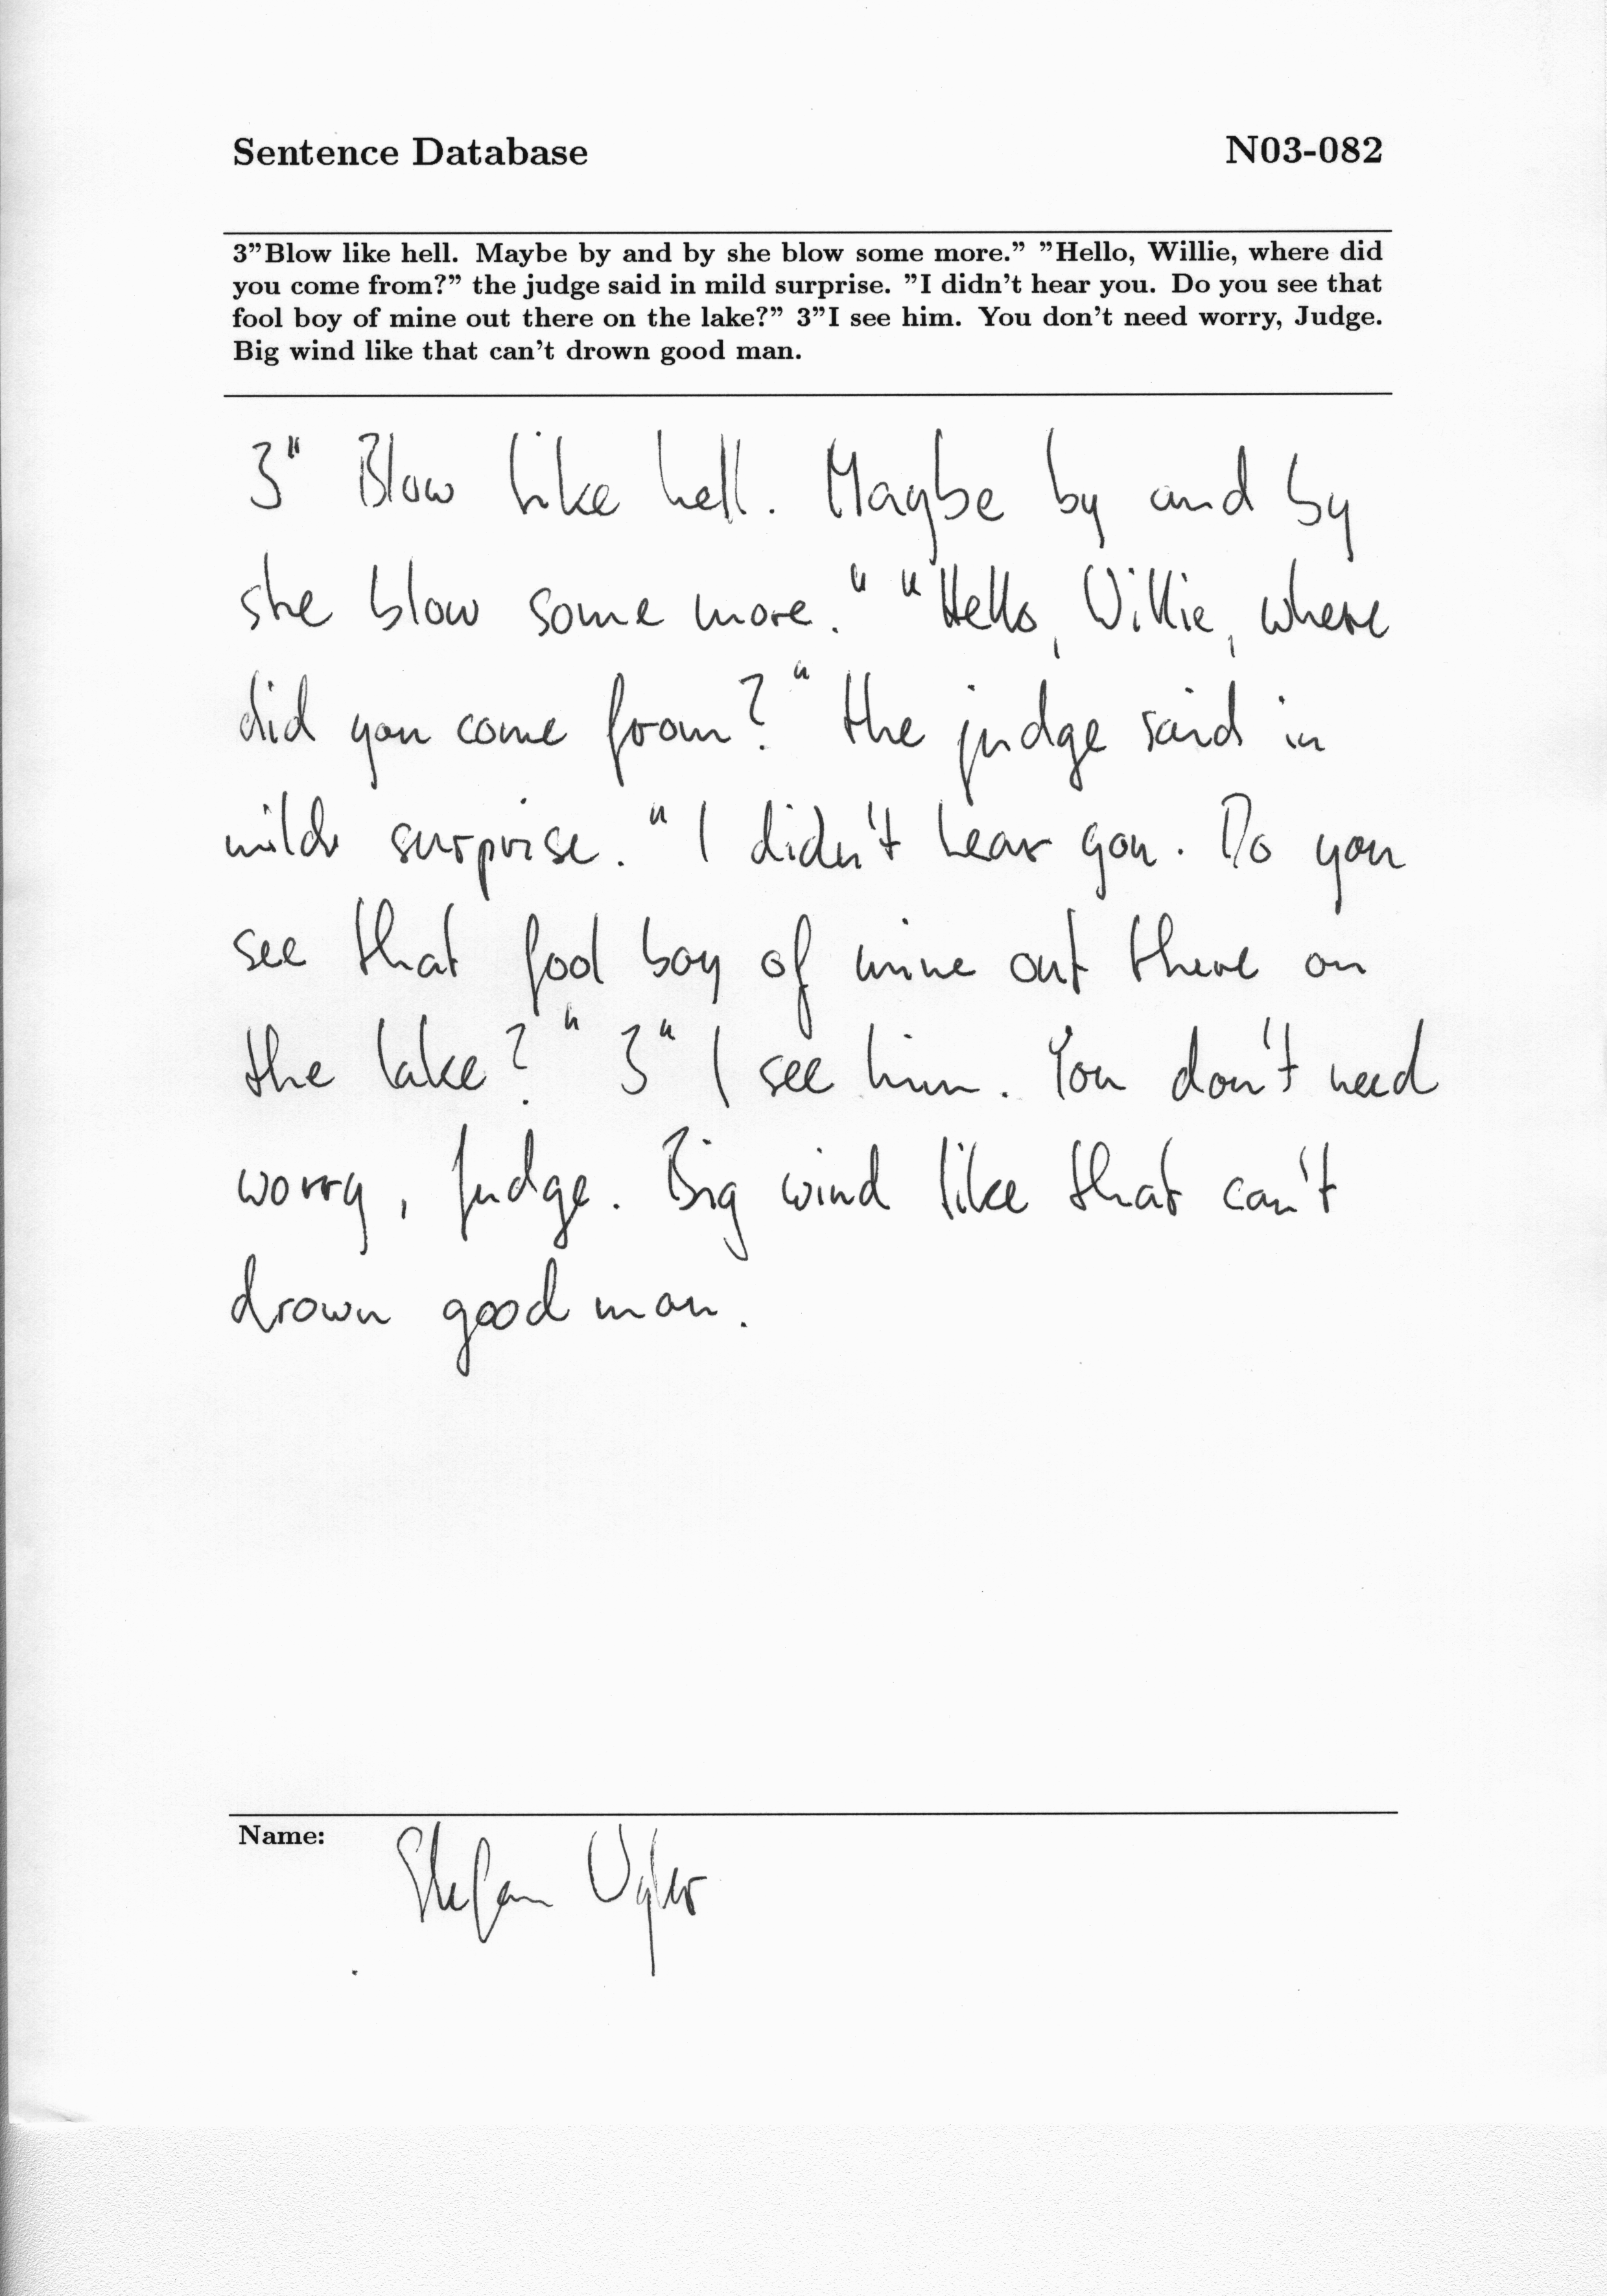 Sentence Database N03-082
3”Blow like hell. Maybe by and by she blow some more.” ”Hello, Willie, where did
you come from?” the judge said in mild surprise. ”I didn’t hear you. Do you see that
fool boy of mine out there on the lake?” 3”I see him. You don’t need worry, Judge.
Big wind like that can’t drown good man.
3" Blow like hell. Maybe by and by
she blow some more." "Hello, Willie, where
did you come from?" the judge said in
mild surprise. "I didn't hear you. Do you
see that fool boy of mine out there on
the lake?" 3" I see him. You don't need
worry, Judge. Big wind like that can't
drown good man.
Name: Stefan